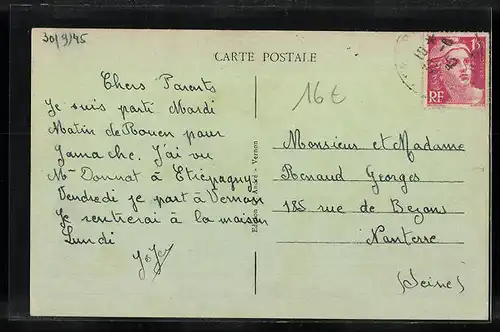 30/9/45
CARTE POSTALE
16€
RF
Chers Parents
Je suis parti Mardi
Matin de Rouen pour
Gamache. J'ai vu
Mme Donnat à Etrépagny
Vendredi je part à Vernon
Je rentrerai à la maison
Lundi
JoJo
Edition André - Vernon
Monsieur et Madame
Renaud Georges
185 rue de Bezons
Nanterre
(Seine)